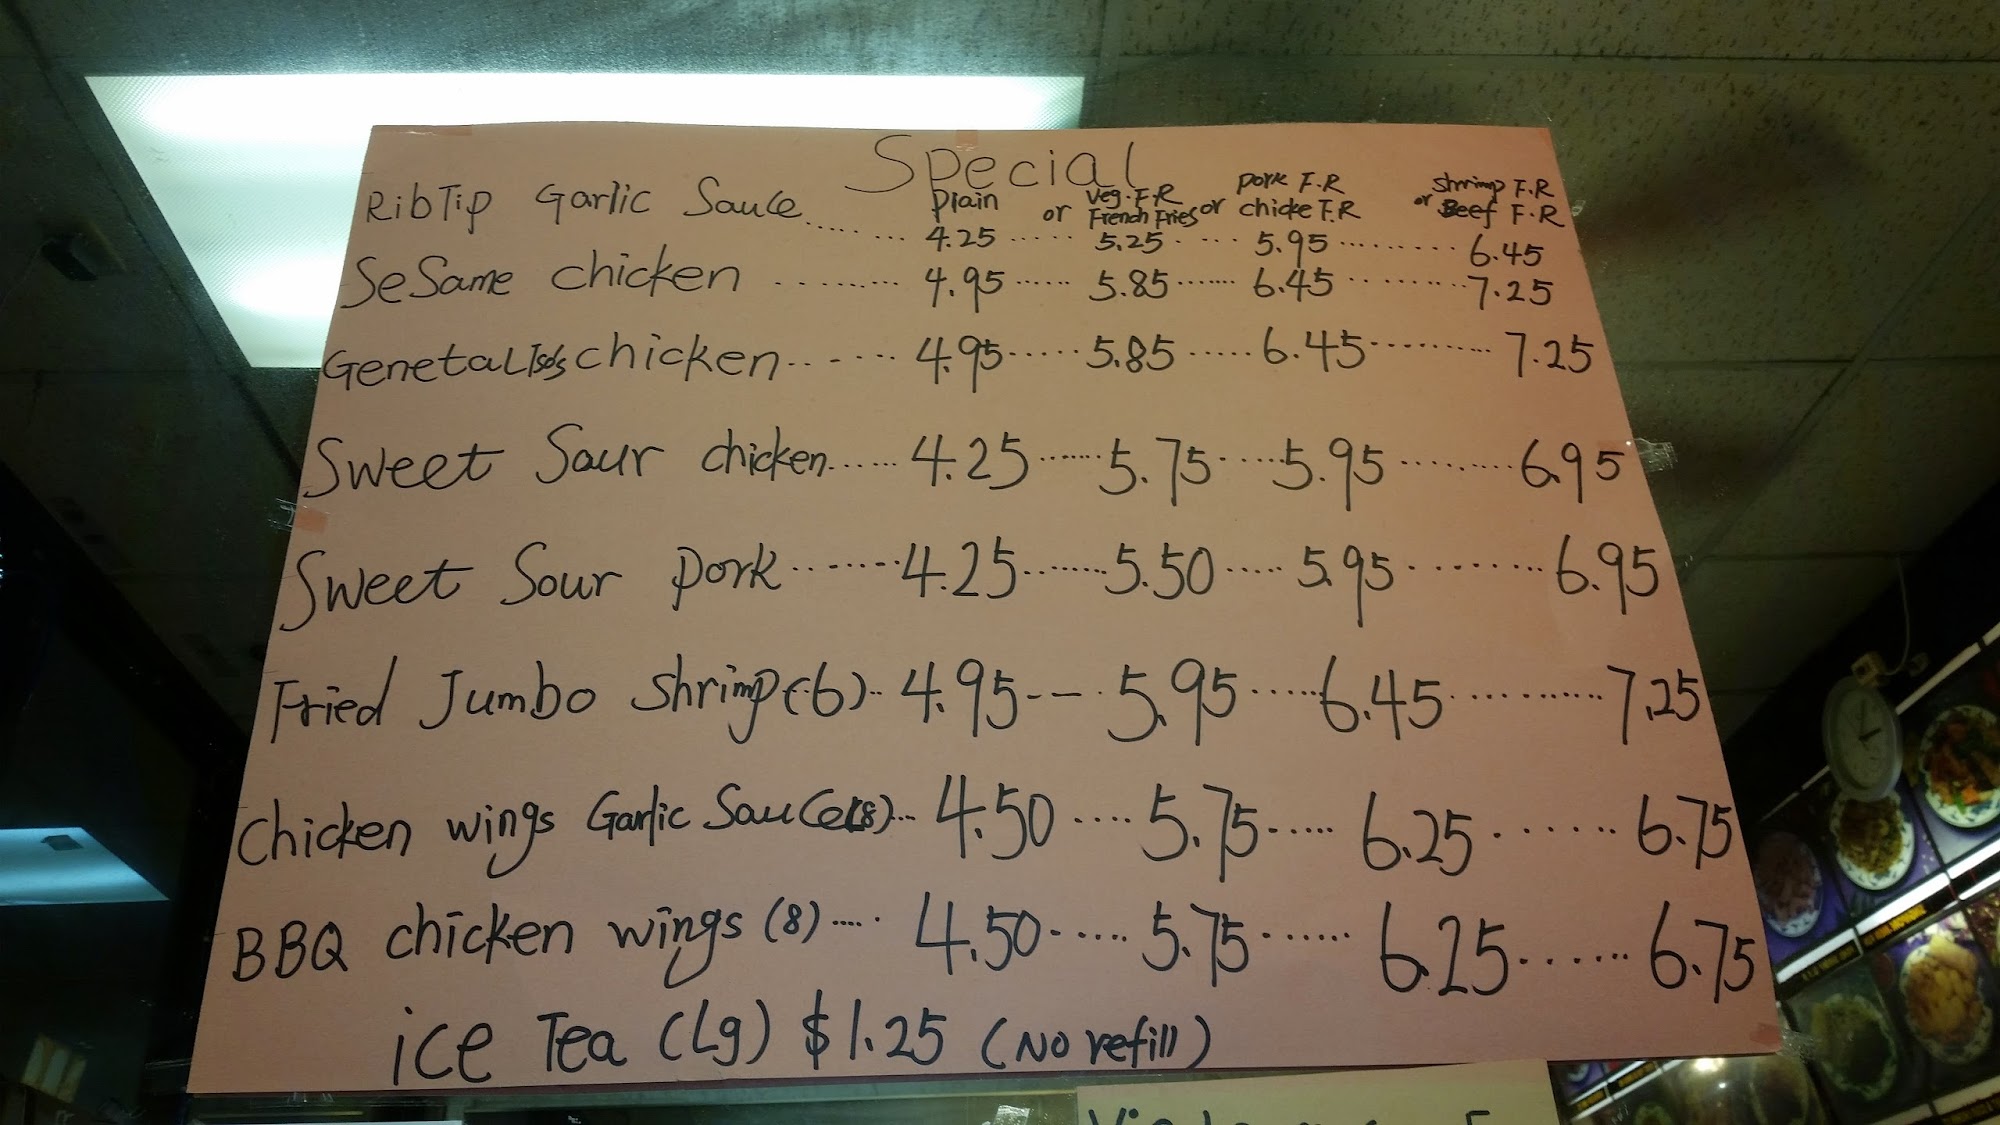 Special
Plain or Veg. F.R French Fries or pork F.R chicke F.R or Shrimp F.R Beef F.R
RibTip Garlic Sauce ..... ... 4.25 ..... 5.25 .... 5.95 ......... 6.45
SeSame chicken ......... 4.95 ...... 5.85 ....... 6.45 ......... 7.25
GenetaL Tso's chicken ...... 4.95 ..... 5.85 ..... 6.45 .......... 7.25
Sweet Saur chicken ...... 4.25 ...... 5.75 ..... 5.95 ......... 6.95
Sweet Sour pork ....... 4.25 ....... 5.50 ..... 5.95 ........ 6.95
Fried Jumbo Shrimp (6) .. 4.95 -- . 5.95 ..... 6.45 .......... 7.25
Chicken wings Garlic Sauce (8) ... 4.50 .... 5.75 ..... 6.25 ....... 6.75
BBQ chicken wings (8) ..... 4.50 ..... 5.75 ...... 6.25 ...... 6.75
ice Tea (Lg) $1.25 (No refill)